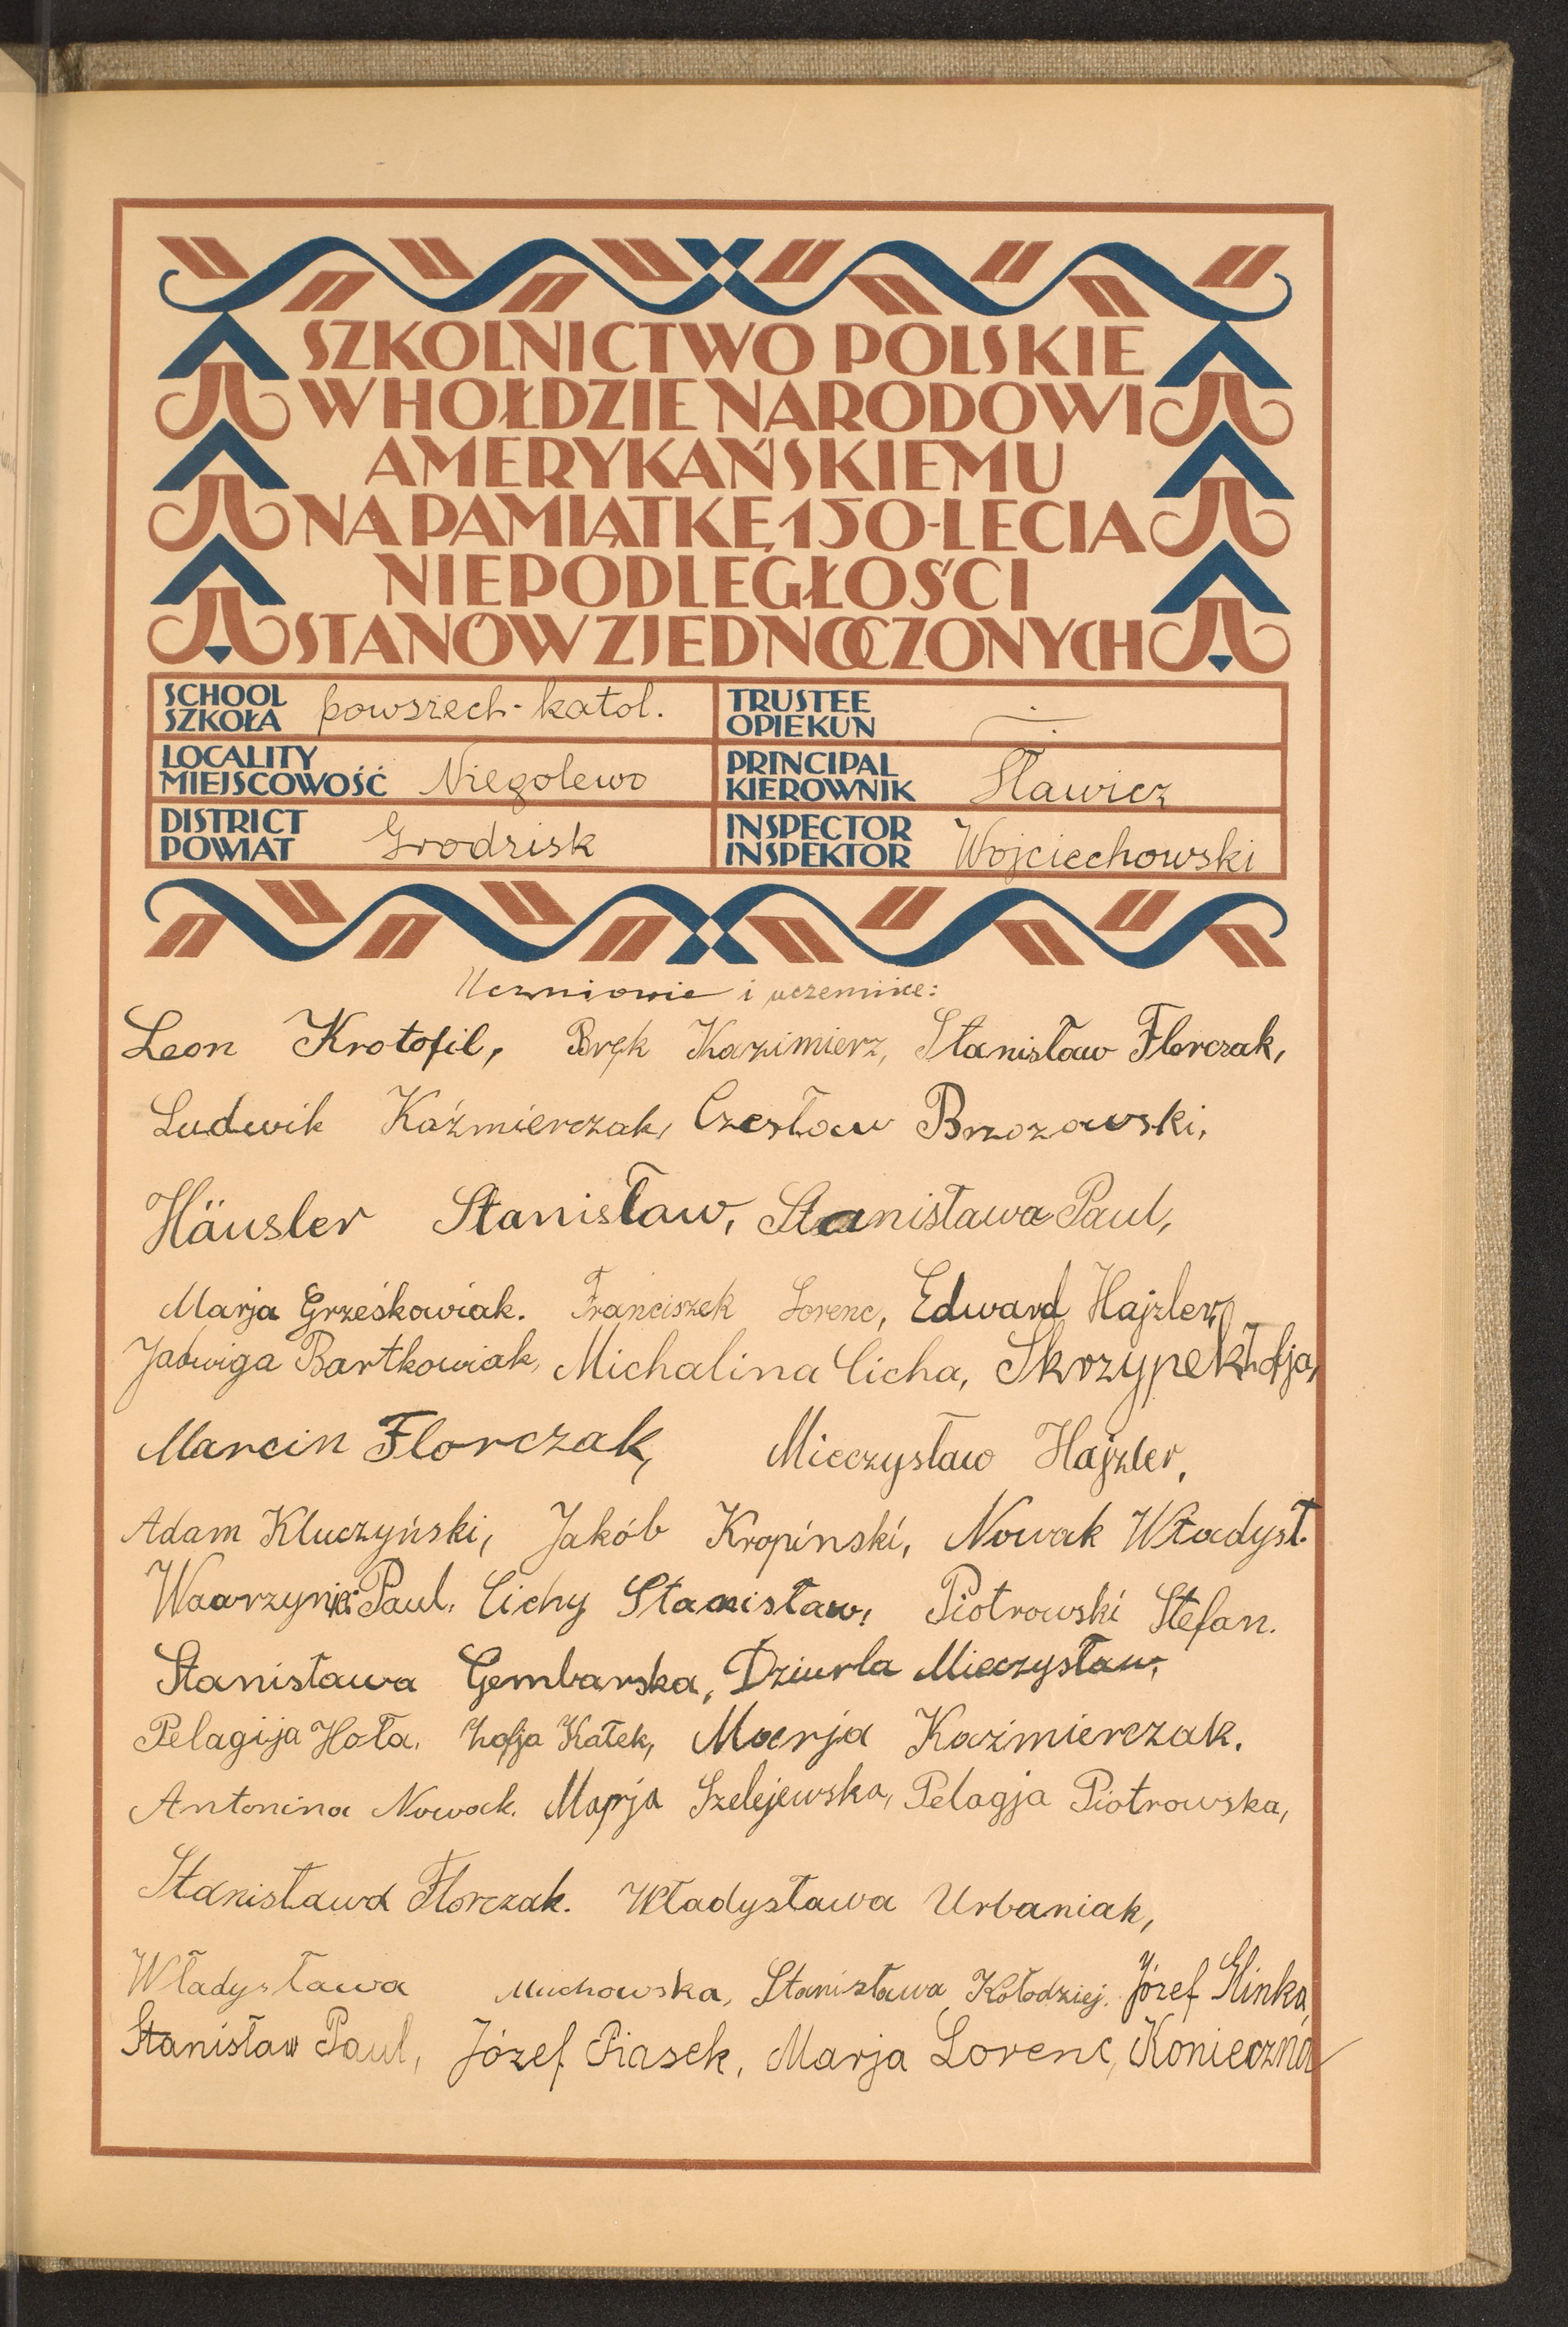 SZKOLNICTWO POLSKIE
W HOŁDZIE NARODOWI
AMERYKAŃSKIEMU
NA PAMIĄTKĘ 150-LECIA
NIEPODLEGŁOŚCI
STANÓW ZJEDNOCZONYCH
SCHOOL
SZKOŁA powszech-katol.
TRUSTEE
OPIEKUN
LOCALITY
MIEJSCOWOŚĆ Niegolewo
PRINCIPAL
KIEROWNIK Sławicz
DISTRICT
POWIAT Grodzisk
INSPECTOR
INSPEKTOR Wojciechowski
Uczniowie i uczennice:
Leon Krotofil, Bręk Kazimierz, Stanisław Florczak,
Ludwik Kaźmierczak, Czesław Brzozowski,
Häusler Stanisław, Stanisława Paul,
Marja Grześkowiak. Franciszek Lorenc, Edward Hajzler,
Jadwiga Bartkowiak, Michalina Cicha, Skrzypek Zofja,
Marcin Florczak, Mieczysław Hajzler,
Adam Kluczyński, Jakób Kropiński, Nowak Władysł.
Paul. Cichy Stanisław, Piotrowski Stefan.
Stanisława Gembarska, Dziurla Mieczysław,
Pelagija Hoła. Zofja Kałek, Marja Kaźmierczak.
Antonina Nowack. Marja Szelejewska, Pelagja Piotrowska,
Stanisława Florczak. Władysława Urbaniak,
Władysława Muchowska, Stanisława Kołodziej. Józef Glinka,
Stanisław Paul, Józef Piasek, Marja Lorenc, Konieczna